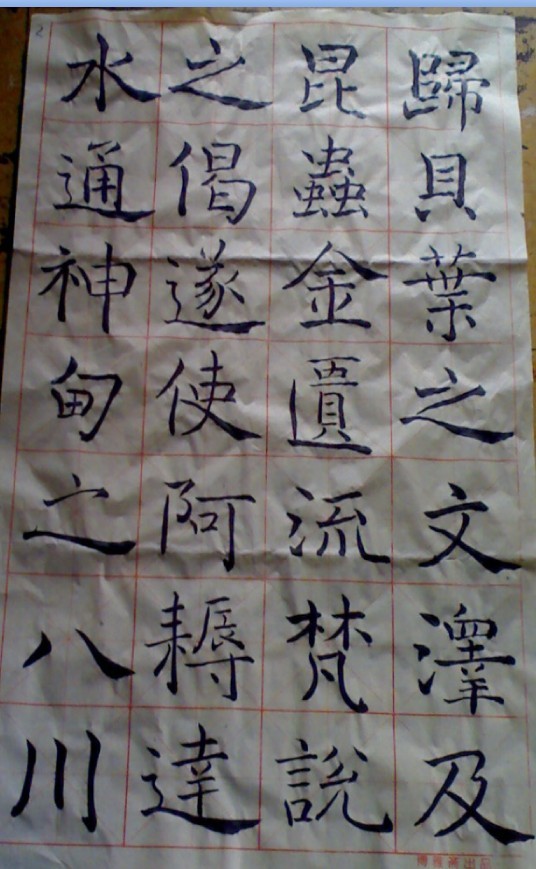 歸貝葉之文澤及
昆蟲金匱流梵說
之偈遂使阿耨達
水通神甸之八川
2
出品